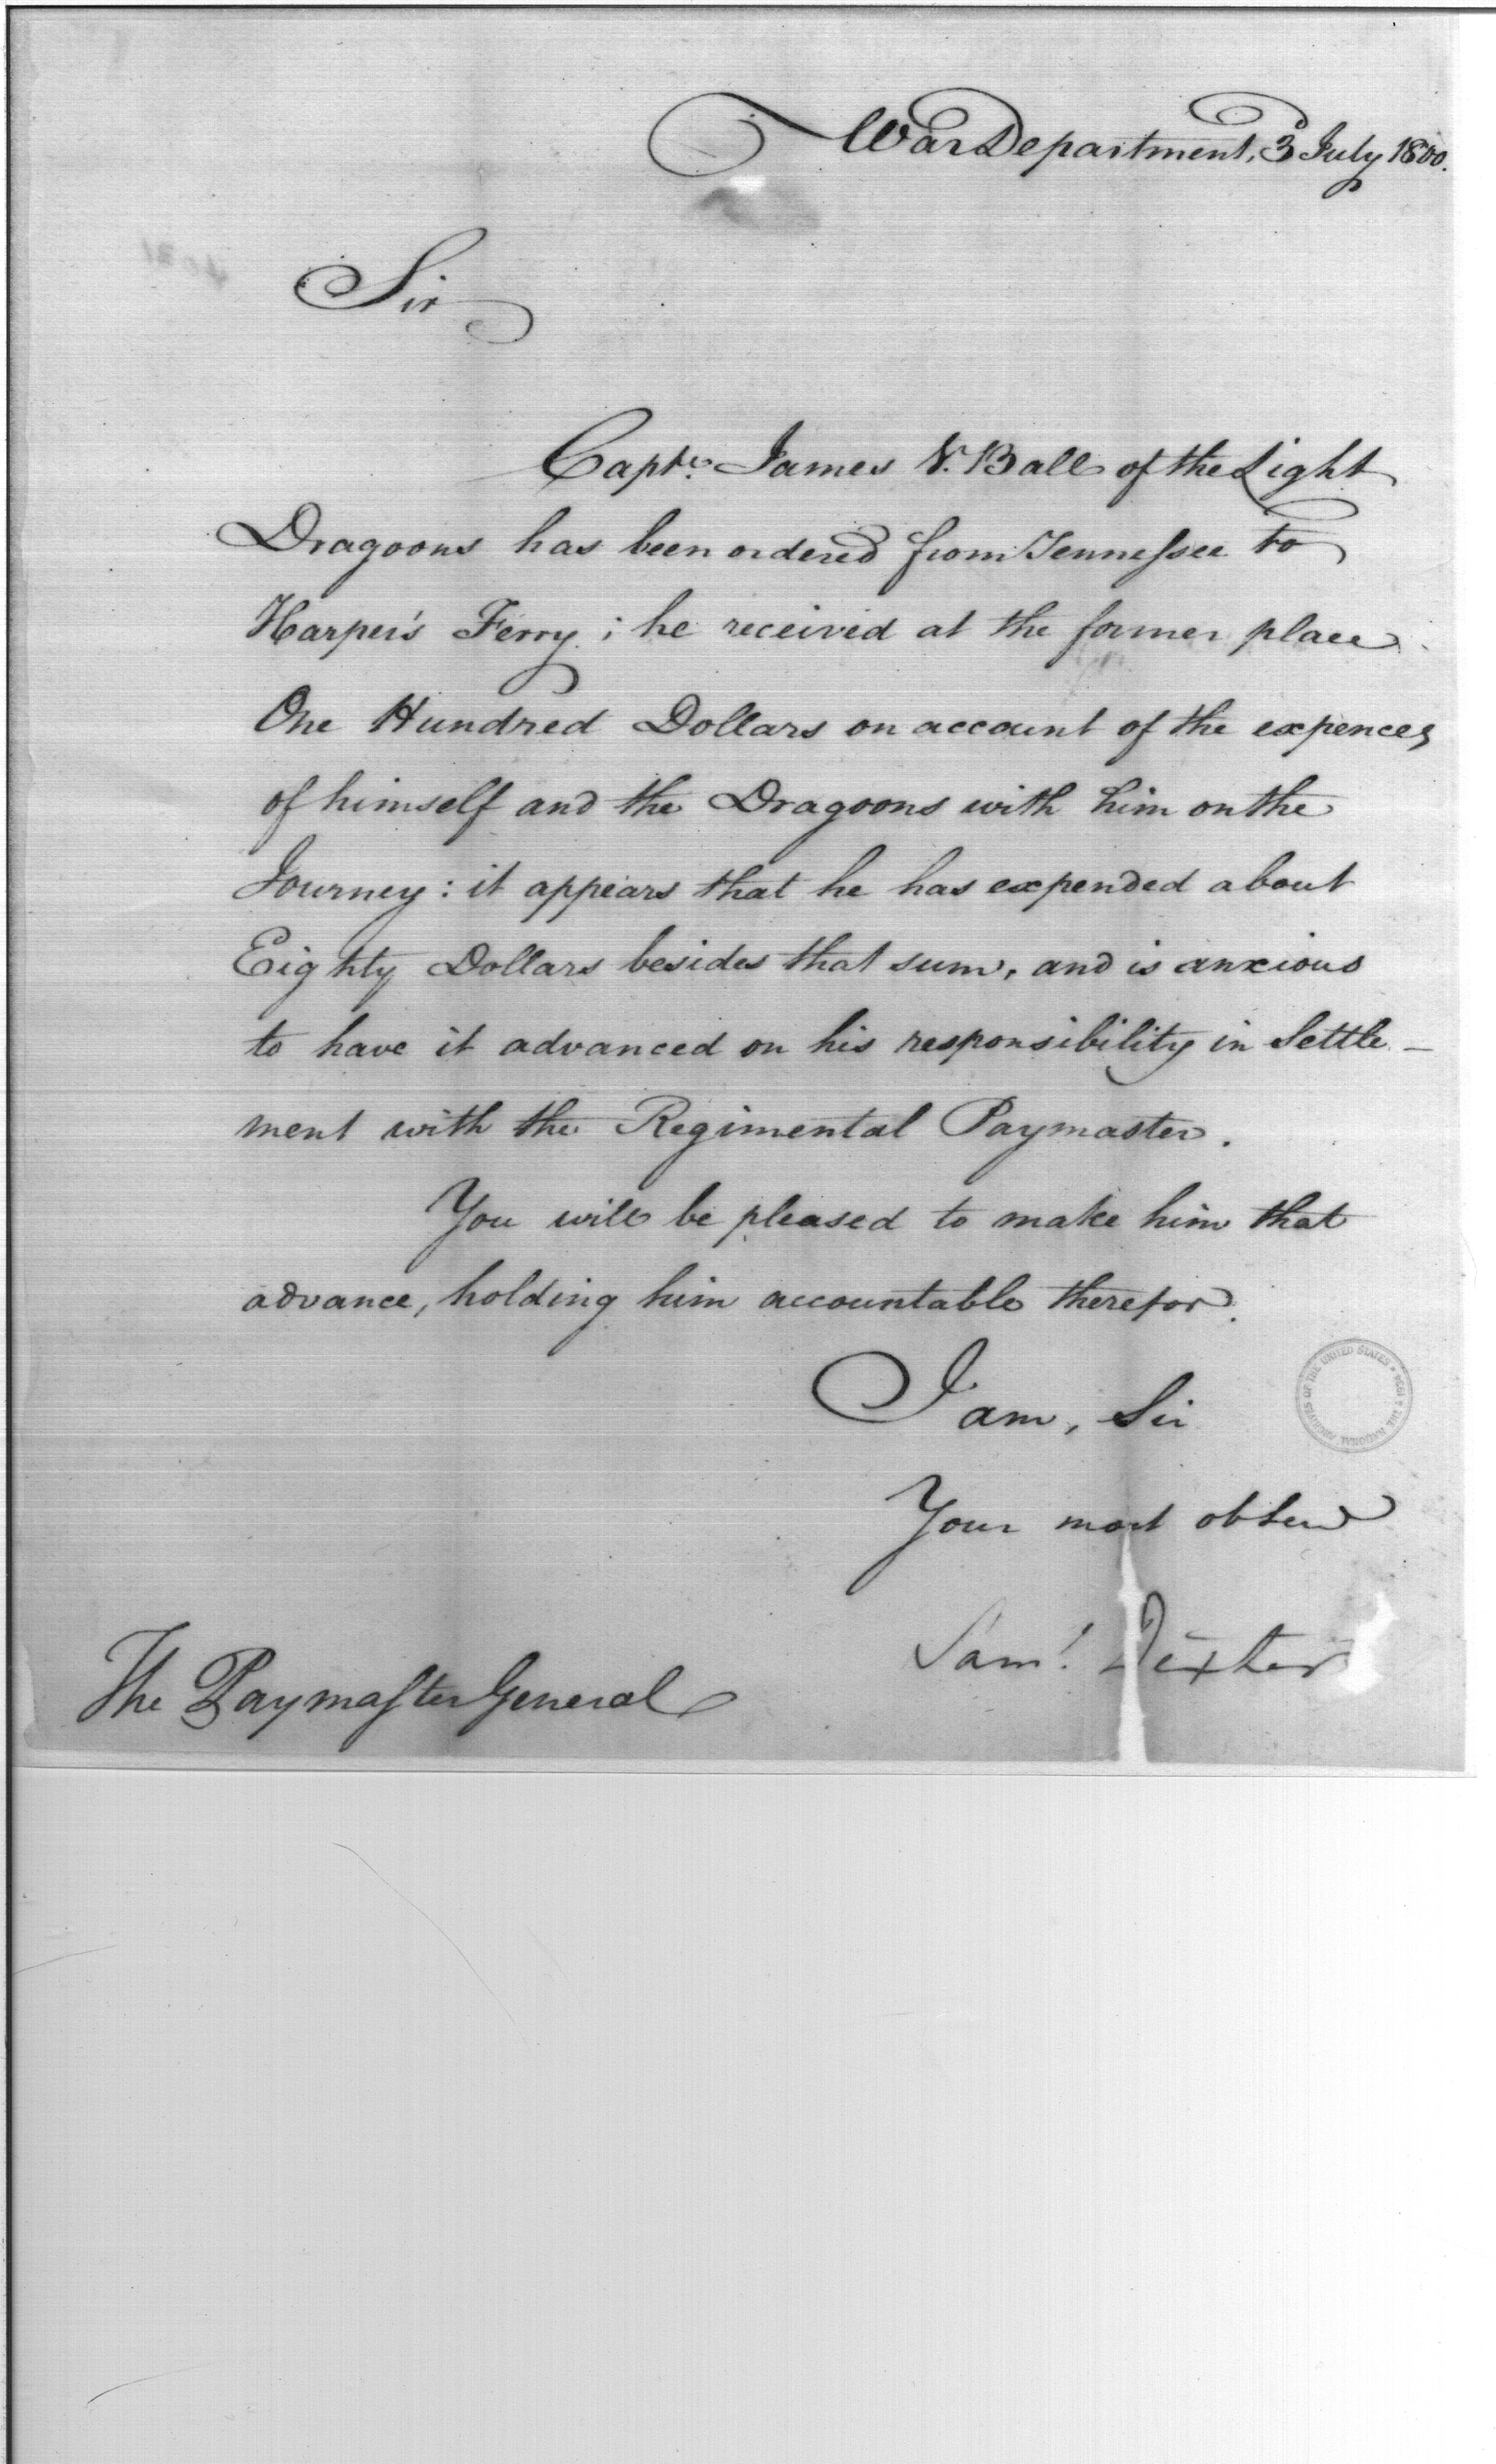 War Department, 3 July 1800.
Sir
Capt. James V. Ball of the Light
Dragoons has been ordered from Tennessee to
Harper's Ferry; he received at the former place
One Hundred Dollars on account of the expences
of himself and the Dragoons with him on the
Journey: it appears that he has expended about
Eighty Dollars besides that sum, and is anxious
to have it advanced on his responsibility in Settle-
ment with the Regimental Paymaster.
You will be pleased to make him that
advance, holding him accountable therefor.
I am, Sir
Your most obt serv
Saml. Dexter
The Paymaster General
THE NATIONAL ARCHIVES OF THE UNITED STATES • 1934 •